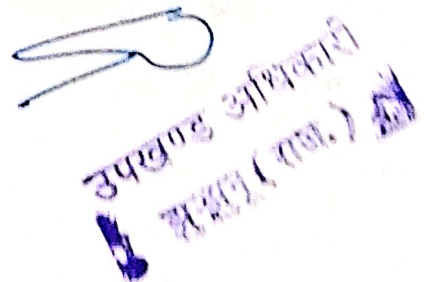 उपखण्ड अधिकारी
(राज.)